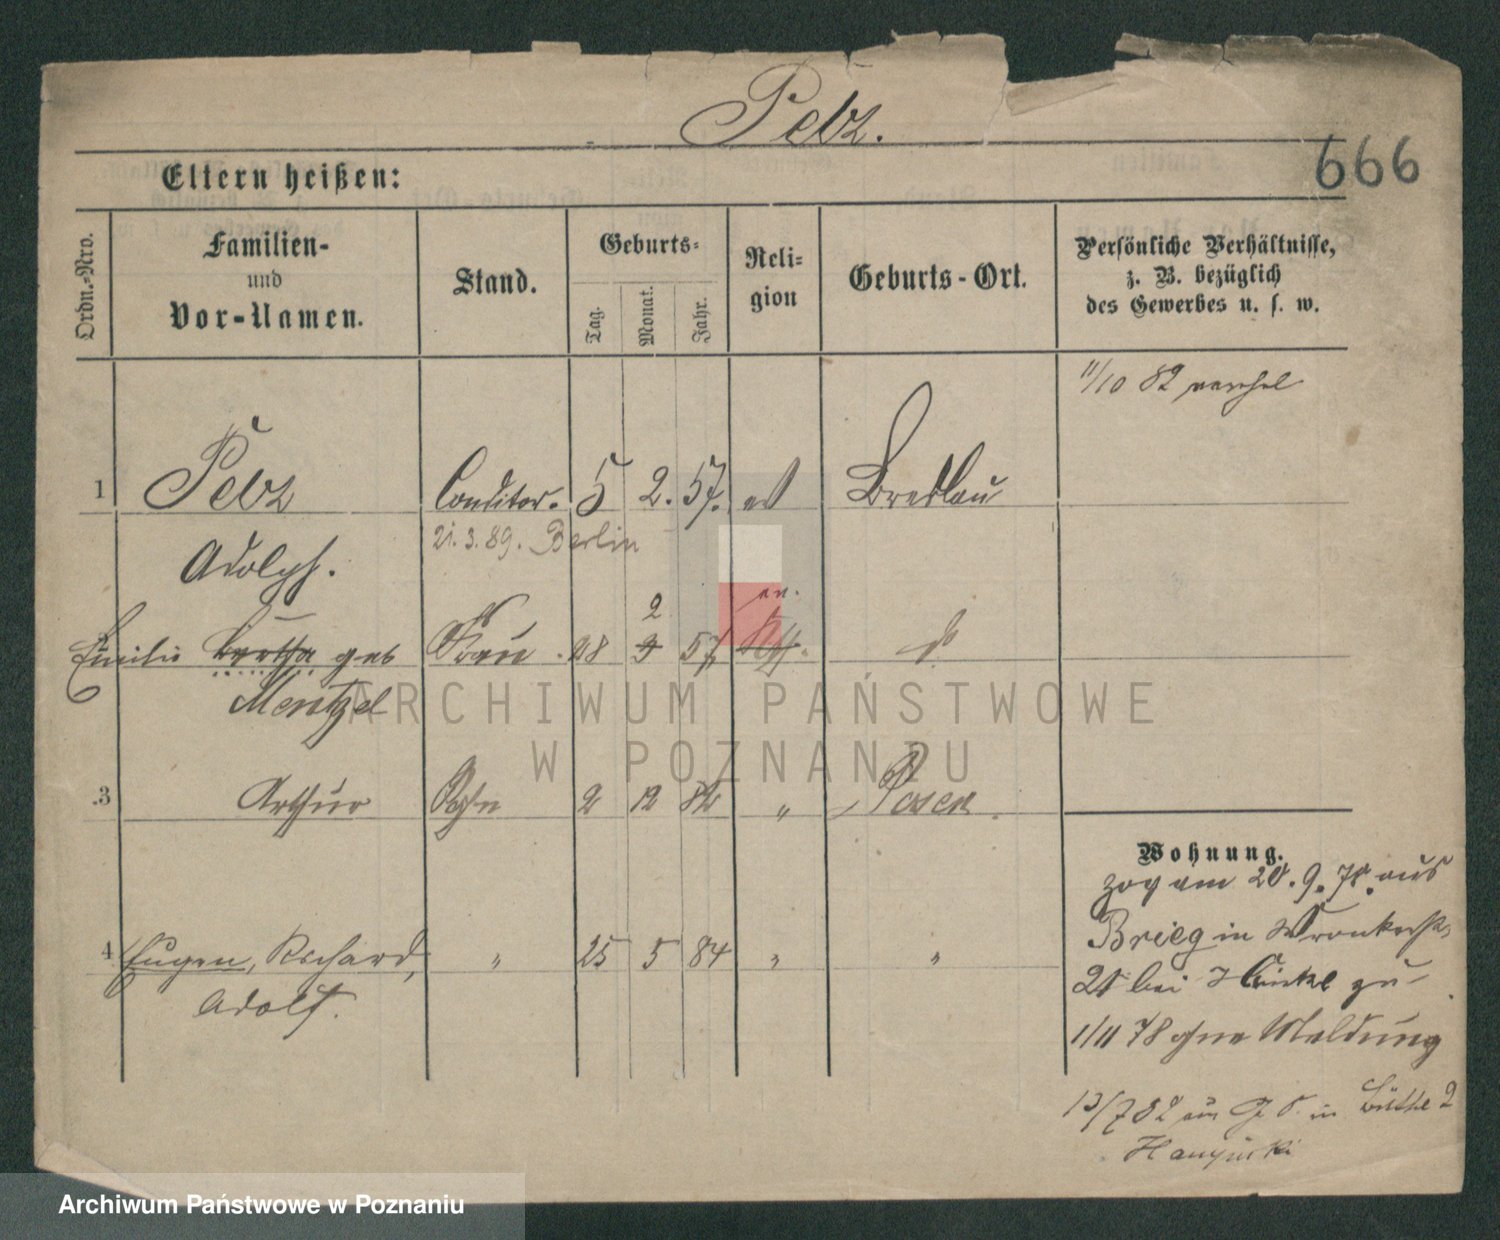 Pelz.
666
Eltern heißen:
Ordn.-Nro.
Familien-
und
Vor-Namen.
Stand.
Geburts-
Tag.
Monat.
Jahr.
Reli-
gion
Geburts-Ort.
Persönliche Verhältnisse,
z. B. bezüglich
des Gewerbes u. s. w.
11/10 82
1 Pelz Conditor. 5 2. 57. Breslau
21. 3. 89. Berlin
Adolph.
2
ev.
Emilie Bertha geb Frau 28 3 57
Mentzel
3 Arthur Sohn 2 12 82 " Posen.
Wohnung.
zog am 20. 9. 78. aus
4 Eugen, Richard, " 25 5 84 " "
Brieg in
Adolf.
bei zu
1/11 78 ohne Meldung
13/7 82 in 2
ARCHIWUM PAŃSTWOWE
W POZNANIU
Archiwum Państwowe w Poznaniu